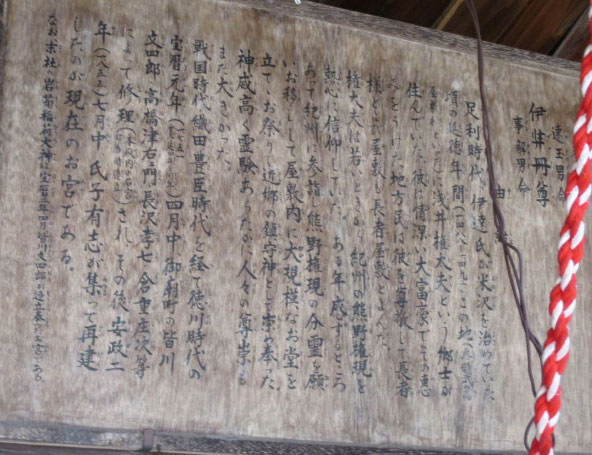 速玉男命
伊弉丹尊
事解男命
由
足利時代、伊達氏が米沢を治めていた
頃の延徳年間(一四八九
浅井権太夫という郷士が
住んでいた。彼は情深い大富豪でその恵
みをうけた地方民は彼を尊敬して長者
様とよび屋敷を長者屋敷とよんだ。
権太夫は若いときから紀州の熊野権現を
熱心に信仰していた。ある年感ずるところ
あって紀州に参詣、熊野権現の分霊を願
いお移しして屋敷内に大規模なお堂を
立てお祭りし近郷の鎮守神として崇め奉った。
神威高く霊験あらたか、人々の尊崇も
また大きかった。
戦国時代織田豊臣時代を経て徳川時代の
宝暦元年(一七五一)四月中御剣町の皆川
文四郎、高橋津右門、長沢孝七、倉重庄次等
によって修理され、その後安政二
年(一八五五)七月中氏子有志が集って再建
したのが現在のお宮である。
なお末社の岩苔稲荷大神は宝暦三年四月皆川文四郎の建立